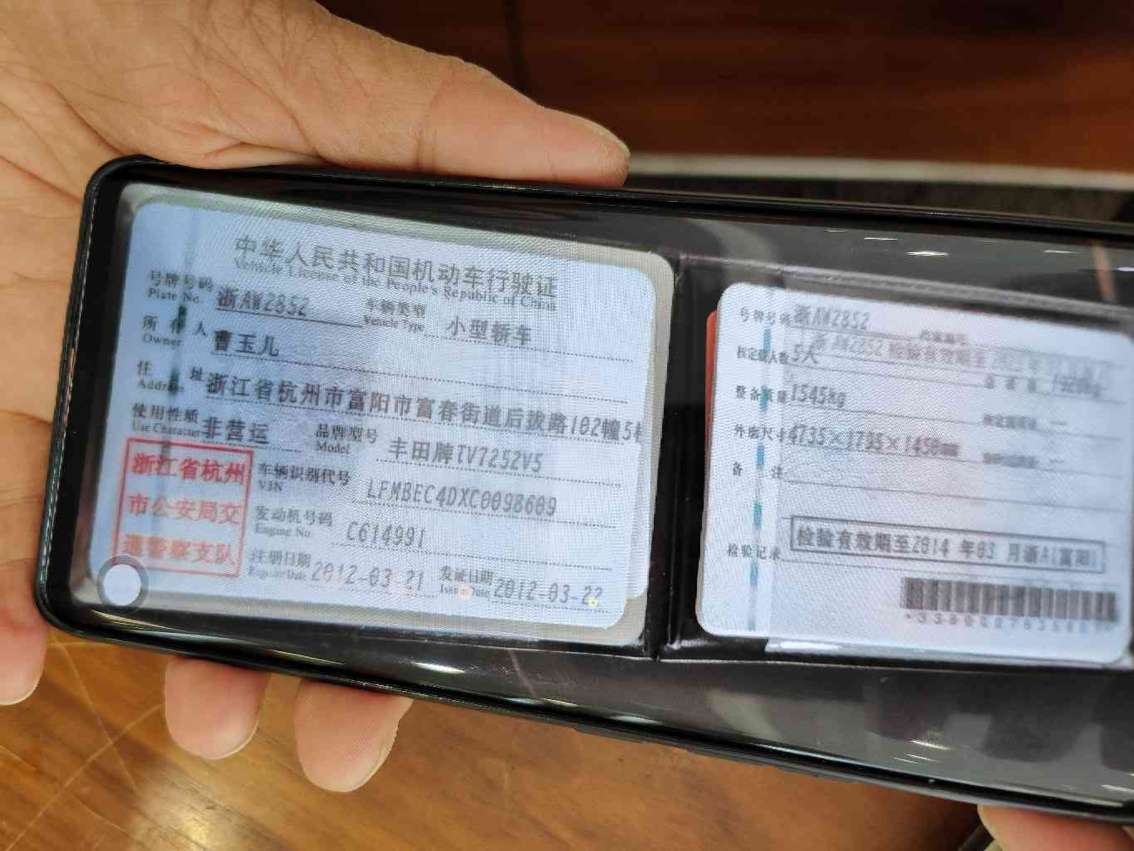 中华人民共和国机动车行驶证
Vehicle License of the People's Republic of China
号牌号码 浙AW2852 车辆类型 小型轿车
Plate No. Vehicle Type
所有人 曹玉儿
Owner
住址 浙江省杭州市富阳市富春街道后拔路102幢5
Address
使用性质 非营运 品牌型号 丰田牌TV7252V5
Use Character Model
浙江省杭州
市公安局交
通警察支队
车辆识别代号 LFMBEC4DXC0098609
VIN
发动机号码 C614991
Engine No.
注册日期 2012-03-21 发证日期 2012-03-22
Register Date Issue Date
号牌号码 浙AW2852
浙AW2852 检验有效期至
核定载人数 5人
整备质量 1545kg
外廓尺寸 4735×1735×1450mm
备注
检验记录 检验有效期至2014 年03 月浙A(富阳)